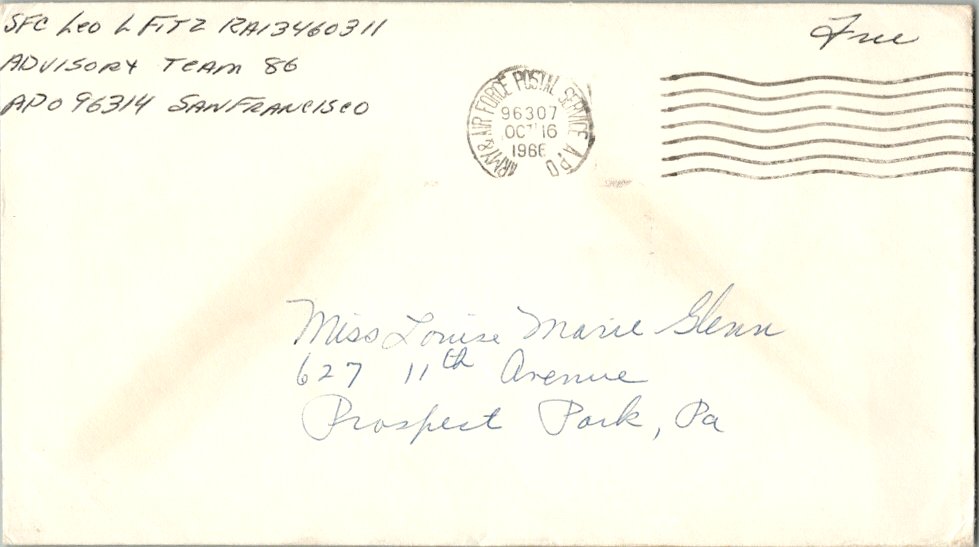 SFC Leo L Fitz RA13460311
Advisory Team 86
APO 96314 San Francisco
Free
ARMY & AIR FORCE POSTAL SERVICE A.P.O
96307
OCT 16
1966
Miss Louise Marie Glenn
627 11th Avenue
Prospect Park, Pa